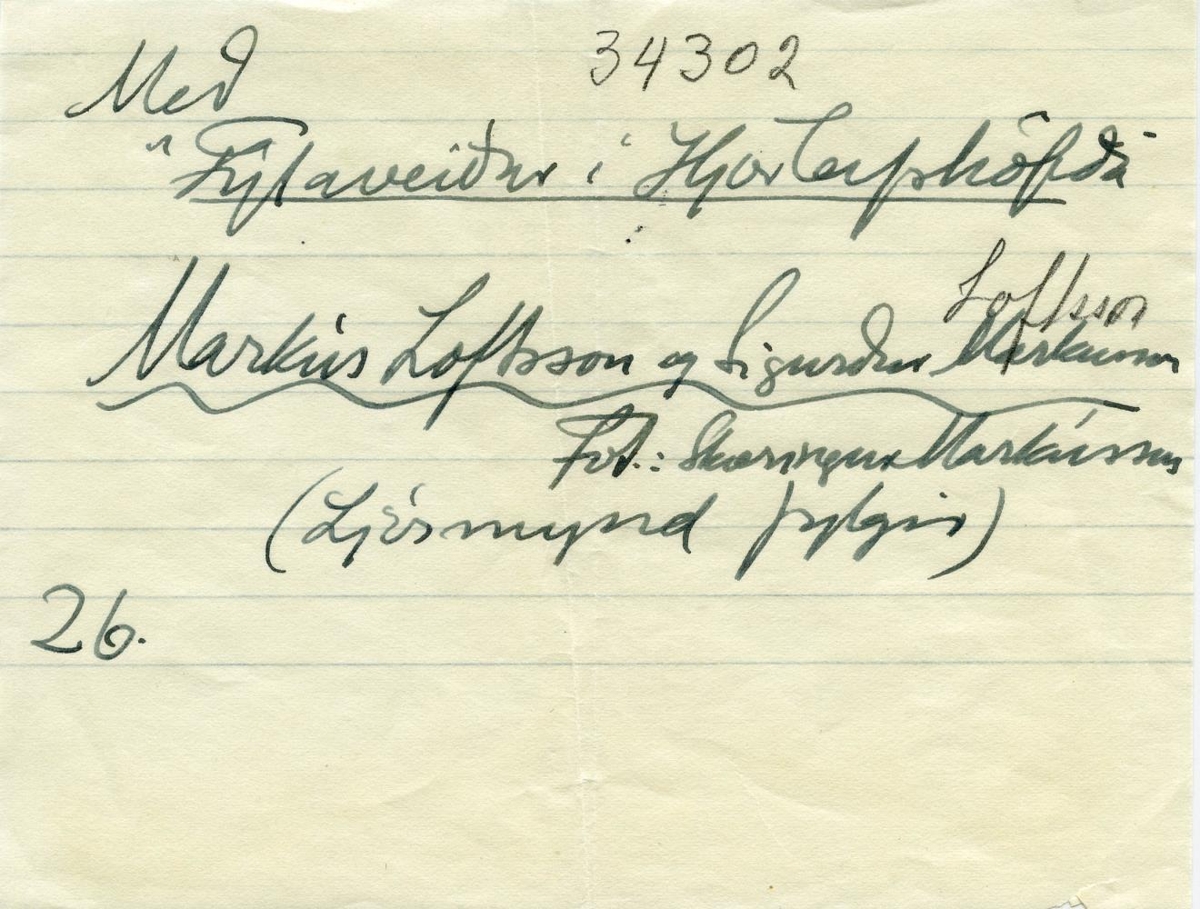 34302
Með
"Fýlaveiðar í Hjörleifshöfða"
Loftsson
Markús Loftsson og Sigurður Markússon
Fot.: Skæringur Markússon
(Ljósmynd fylgir)
26.